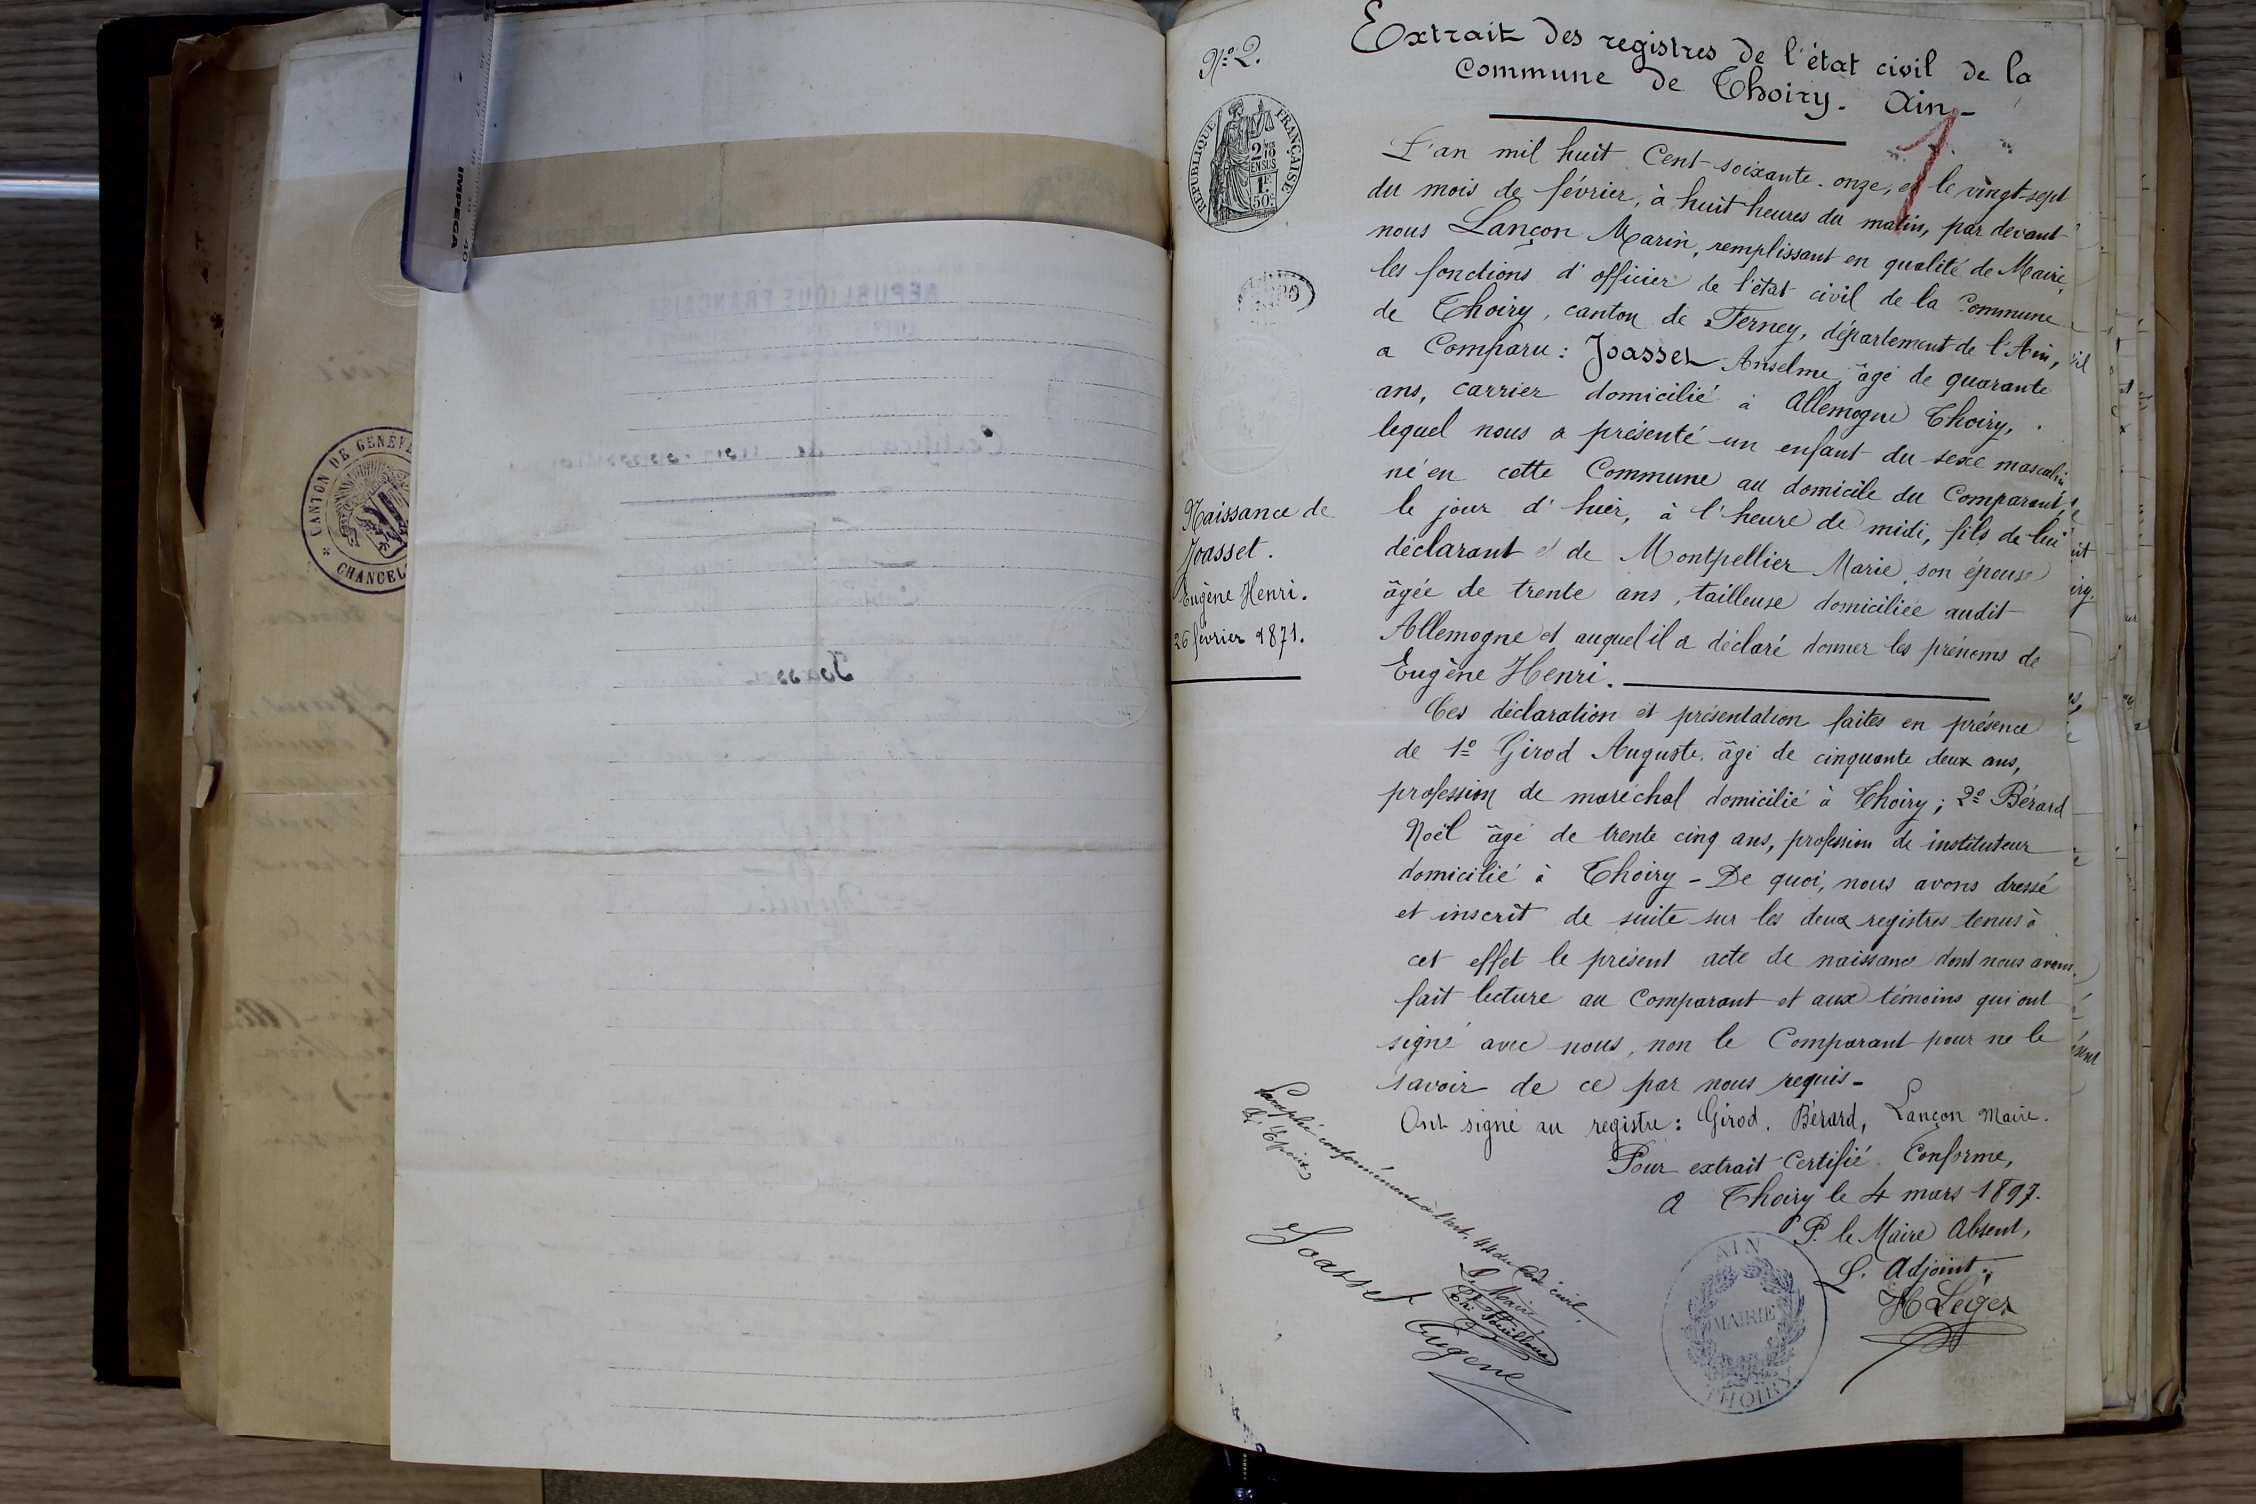 IMPEGA
CANTON DE GENÈVE
CHANCEL
Nº 2.
Extrait des registres de l'état civil de la
Commune de Thoiry. Ain -
RÉPUBLIQUE FRANÇAISE
2/10
EN SUS
1F.
50c
L'an mil huit Cent soixante-onze, et le vingt-sept
du mois de février, à huit heures du matin, par devant
nous Lançon Marin, remplissant en qualité de Maire,
les fonctions d'officier de l'état civil de la Commune
de Thoiry, canton de Ferney, département de l'Ain,
a Comparu : Joasset Anselme, âgé de quarante
ans, carrier domicilié à Allemogne Thoiry,
lequel nous a présenté un enfant du sexe masculin
né en cette Commune au domicile du Comparant,
le jour d'hier, à l'heure de midi, fils de lui
déclarant et de Montpellier Marie, son épouse
âgée de trente ans, tailleuse domiciliée audit
Allemogne et auquel il a déclaré donner les prénoms de
Eugène Henri.
Naissance de
Joasset.
Eugène Henri.
26 février 1871.
Ces déclaration et présentation faites en présence
de 1º Girod Auguste, âgé de cinquante deux ans,
profession de maréchal domicilié à Thoiry ; 2º Bérard
Noël âgé de trente cinq ans, profession de instituteur
domicilié à Thoiry - De quoi, nous avons dressé
et inscrit de suite sur les deux registres tenus à
cet effet le présent acte de naissance dont nous avons
fait lecture au Comparant et aux témoins qui ont
signé avec nous, non le Comparant pour ne le
savoir de ce par nous requis -
Ont signé au registre : Girod, Bérard, Lançon Maire.
Pour extrait Certifié Conforme,
a Thoiry le 4 mars 1897.
P. le Maire Absent,
L. Adjoint.
H Leger
AIN
MAIRIE
THOIRY
Paraphé conformément à l'art. 44 du Code civil,
L'Epoux
Le Maire
Joasset Eugène